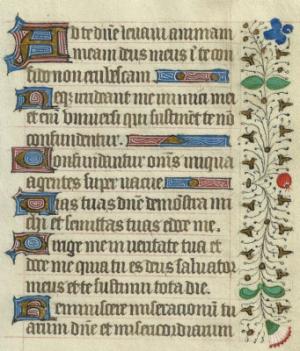 Ad te dñe leuaui animam
meam deus meus i te con
fido non erubescam.
Neq irrideant me inimici mei
et eni vniuersi qui sustinẽt te nõ
confundentur.
Confundantur omẽs iniqua
agentes super vacue
Uias tuas dñe demõstra mi
chi et semitas tuas edoce me.
Dirige me in veritate tua et
doce me quia tu es deus saluator
meus et te sustinui tota die.
Reminiscere miseracionũ tu
arum dñe et misericordiarum